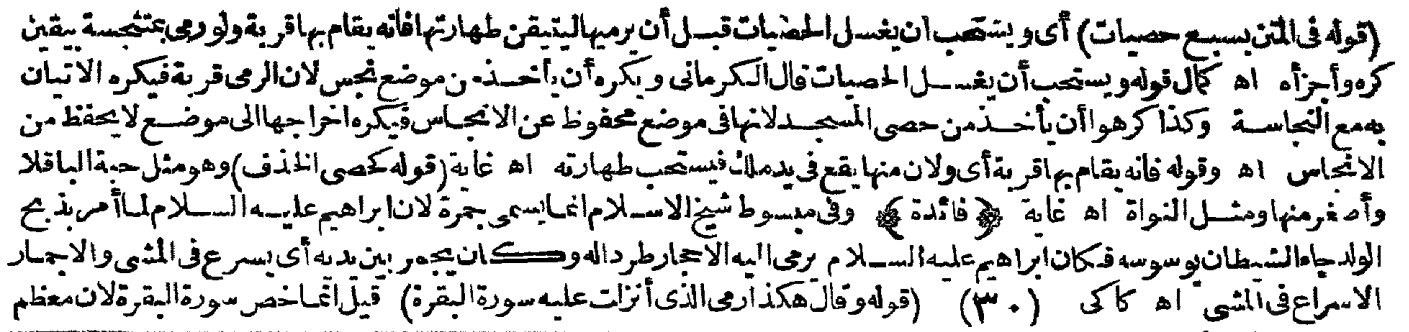 (قوله في المتن بسبع حصيات) أى و يستحب ان يغسل الحصيات قبل أن يرميها ليتيقن طهارتها فانه يقام بها قربة ولو رمى بمتنجسة بيقين
كره وأجزأه اه كمال قوله ويستحب أن يغسل الحصيات قال الكرمانى و يكره أن يأخذ من موضع نجس لان الرمى قربة فيكره الاتيان
به مع النجاسة وكذا كرهوا أن يأخذ من حصى المسجد لانها فى موضع محفوظ عن الانجاس فيكره اخراجها الى موضع لا يحفظ من
الانجاس اه وقوله فانه يقام بها قربة أى ولان منها يقع فى يد ملك فيستحب طهارته اه غاية (قوله كحصى الخذف) وهو مثل حبة الباقلا
وأصغر منها ومثل النواة اه غاية ﴿ فائدة ﴾ وفى مبسوط شيخ الاسلام انما يسمى جمرة لان ابراهيم عليه السلام لما أمر بذبح
الولد جاء الشيطان يوسوسه فكان ابراهيم عليه السلام يرمى اليه الاحجار طردا له وكان يجمر بين يديه أى يسرع فى المشى والاجمار
الاسراع فى المشى اه كاكى (٣٠) (قوله وقال هكذا رمى الذى أنزلت عليه سورة البقرة) قيل انما خص سورة البقرة لان معظم